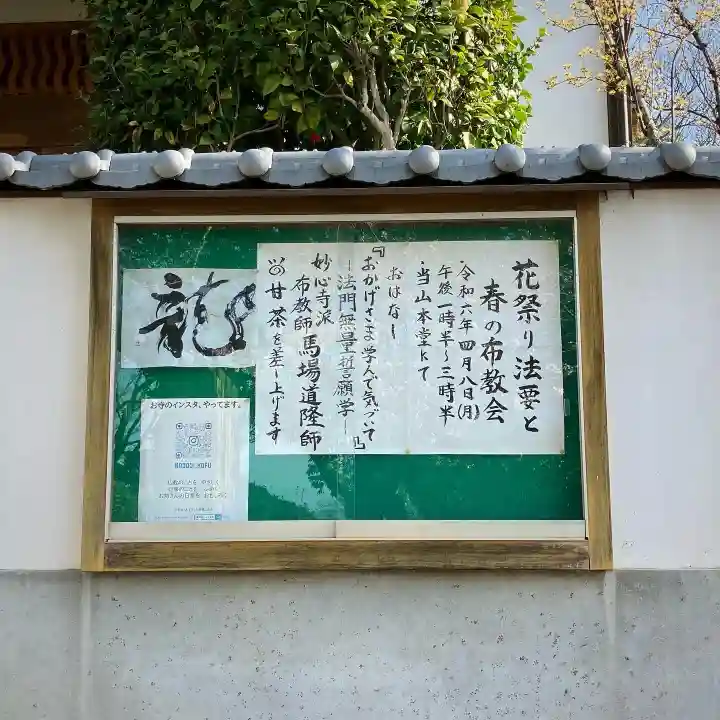 花祭り法要と
春の布教会
・令和六年四月八日(月)
午後一時半〜三時半
・当山本堂にて
おはなし
『おかげさま学んで気づいて』
―法門無量誓願学―
妙心寺派
布教師 馬場道隆師
甘茶を差し上げます
龍
お寺のインスタ、やってます。